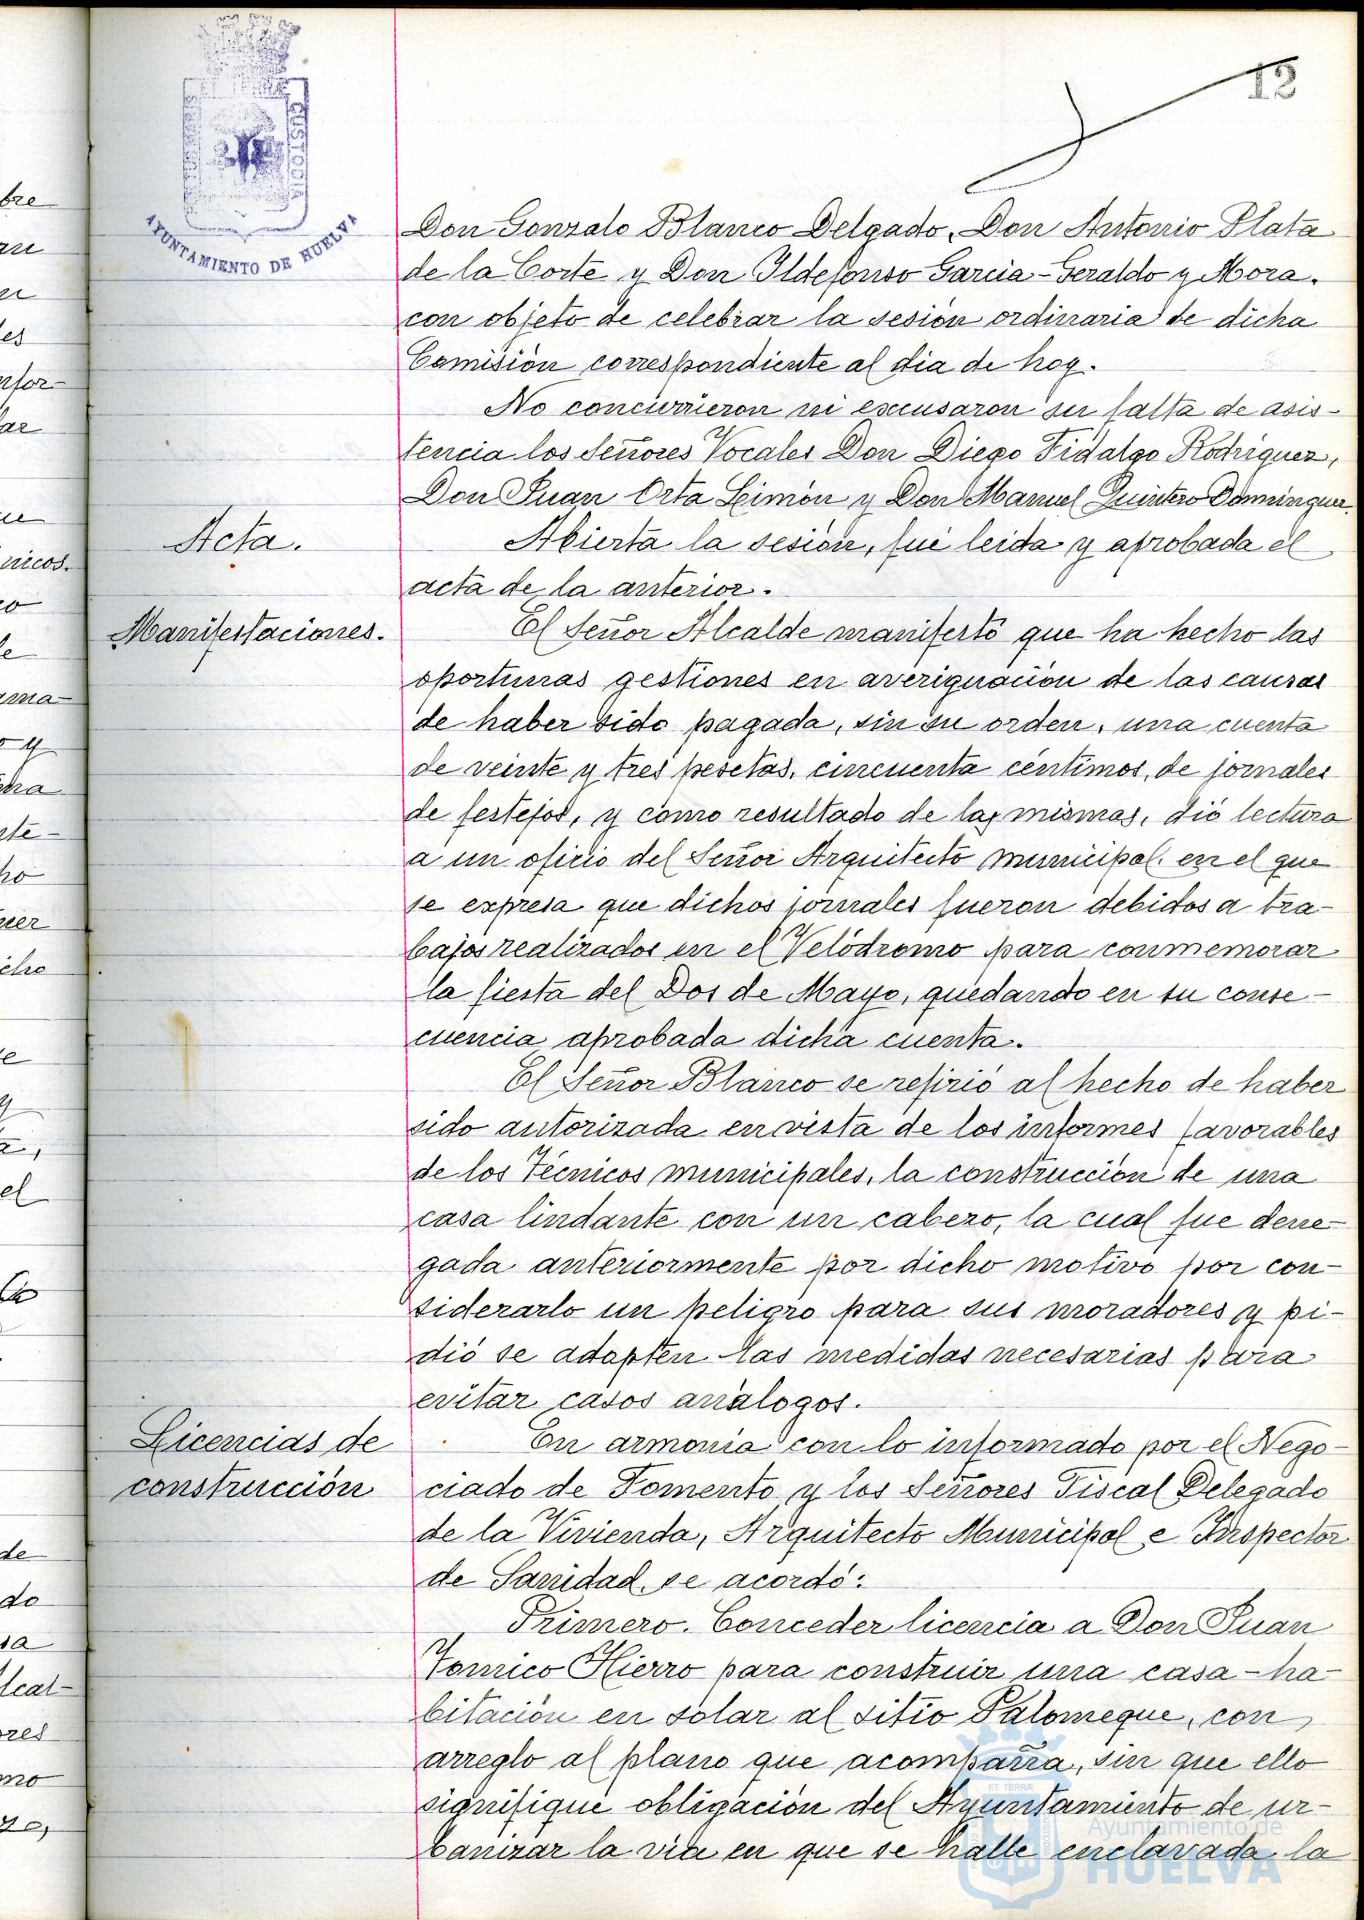 12
PORTUS MARIS ET TERRÆ CUSTODIA
AYUNTAMIENTO DE HUELVA
Don Gonzalo Blanco Delgado, Don Antonio Plata
de la Corte y Don Ildefonso Garcia-Geraldo y Mora,
con objeto de celebrar la sesión ordinaria de dicha
Comisión correspondiente al dia de hoy.
No concurrieron ni excusaron su falta de asis-
tencia los Señores Vocales Don Diego Fidalgo Rodríguez,
Don Juan Orta Limón y Don Manuel Quintero Domínguez.
Acta.
Abierta la sesión, fué leida y aprobada el
acta de la anterior.
Manifestaciones.
El Señor Alcalde manifestó que ha hecho las
oportunas gestiones en averiguación de las causas
de haber sido pagada, sin su orden, una cuenta
de veinte y tres pesetas, cincuenta céntimos, de jornales
de festejos, y como resultado de las mismas, dió lectura
a un oficio del Señor Arquitecto municipal en el que
se expresa que dichos jornales fueron debidos a tra-
bajos realizados en el Velódromo para conmemorar
la fiesta del Dos de Mayo, quedando en su conse-
cuencia aprobada dicha cuenta.
El Señor Blanco se refirió al hecho de haber
sido autorizada en vista de los informes favorables
de los Técnicos municipales, la construcción de una
casa lindante con un cabezo, la cual fue dene-
gada anteriormente por dicho motivo por con-
siderarlo un peligro para sus moradores y pi-
dió se adopten las medidas necesarias para
evitar casos análogos.
Licencias de
construcción
En armonía con lo informado por el Nego-
ciado de Fomento y los Señores Fiscal Delegado
de la Vivienda, Arquitecto Municipal e Inspector
de Sanidad, se acordó:
Primero. Conceder licencia a Don Juan
Tornico Hierro para construir una casa-ha-
bitación en solar al sitio Palomeque, con
arreglo al plano que acompaña, sin que ello
signifique obligación del Ayuntamiento de ur-
banizar la vía en que se halle enclavada la
Ayuntamiento de
HUELVA